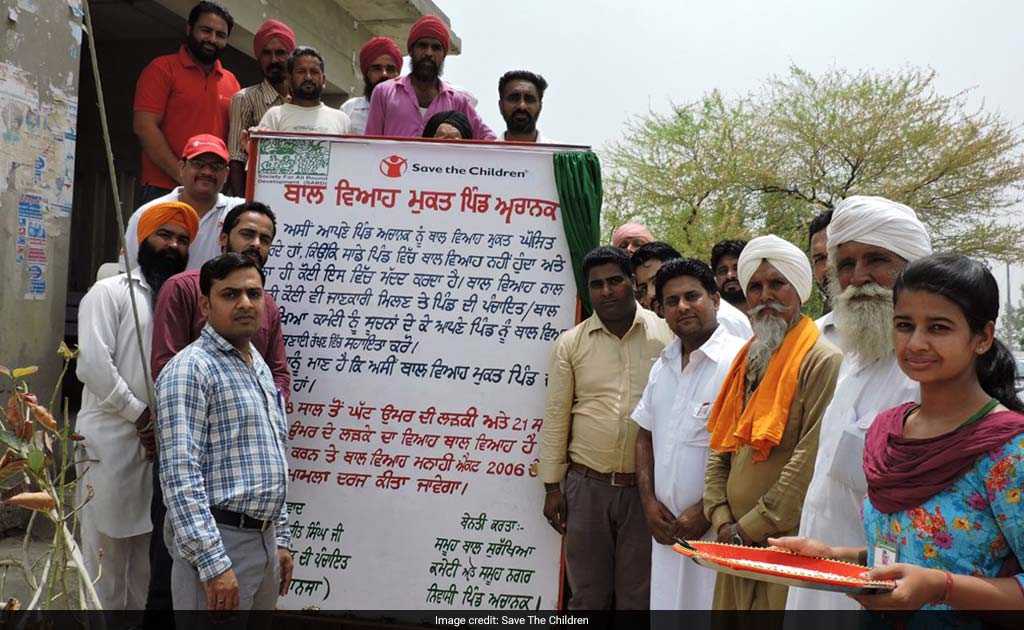 Society For All Round
Development (SARD)
Save the Children
ਬਾਲ ਵਿਆਹ ਮੁਕਤ ਪਿੰਡ ਅਚਾਨਕ
ਅਸੀਂ ਆਪਣੇ ਪਿੰਡ ਅਚਾਨਕ ਨੂੰ ਬਾਲ ਵਿਆਹ ਮੁਕਤ ਘੋਸਿਤ
ਹਾਂ, ਕਿਉਂਕਿ ਸਾਡੇ ਪਿੰਡ ਵਿੱਚ ਬਾਲ ਵਿਆਹ ਨਹੀਂ ਹੁੰਦਾ ਅਤੇ
ਹੀ ਕੋਈ ਇਸ ਵਿੱਚ ਮੱਦਦ ਕਰਦਾ ਹੈ। ਬਾਲ ਵਿਆਹ ਨਾਲ
ਕੋਈ ਵੀ ਜਾਣਕਾਰੀ ਮਿਲਣ ਤੇ ਪਿੰਡ ਦੀ ਪੰਚਾਇਤ/ਬਾਲ
ਕਮੇਟੀ ਨੂੰ ਸੂਚਨਾਂ ਦੇ ਕੇ ਆਪਣੇ ਪਿੰਡ ਨੂੰ ਬਾਲ
ਰੱਖਣ ਵਿੱਚ ਸਹਾਇਤਾ ਕਰੋ।
ਮਾਣ ਹੈ ਕਿ ਅਸੀਂ ਬਾਲ ਵਿਆਹ ਮੁਕਤ ਪਿੰਡ
ਹਾਂ।
ਸਾਲ ਤੋਂ ਘੱਟ ਉਮਰ ਦੀ ਲੜਕੀ ਅਤੇ 21
ਉਮਰ ਦੇ ਲੜਕੇ ਦਾ ਵਿਆਹ ਬਾਲ ਵਿਆਹ ਹੈ
ਕਰਨ ਤੇ ਬਾਲ ਵਿਆਹ ਮਨਾਹੀ ਐਕਟ 2006
ਮਾਮਲਾ ਦਰਜ ਕੀਤਾ ਜਾਵੇਗਾ।
ਸਿੰਘ ਜੀ
ਦੀ ਪੰਚਾਇਤ
ਬੇਨਤੀ ਕਰਤਾ:-
ਸਮੂਹ ਬਾਲ ਸੁਰੱਖਿਆ
ਕਮੇਟੀ ਅਤੇ ਸਮੂਹ ਨਗਰ
ਨਿਵਾਸੀ ਪਿੰਡ ਅਚਾਨਕ।
Image credit: Save The Children